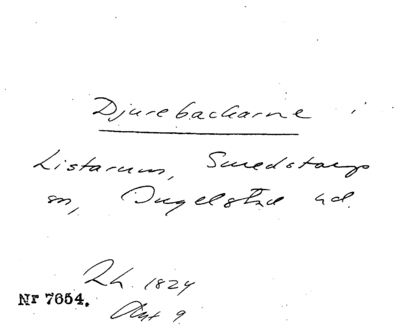 Djurebackarne i
Listarum, Smedstorps
sn, Ingelstad hd.
Lh. 1824
Nr 7654.
Akt 9